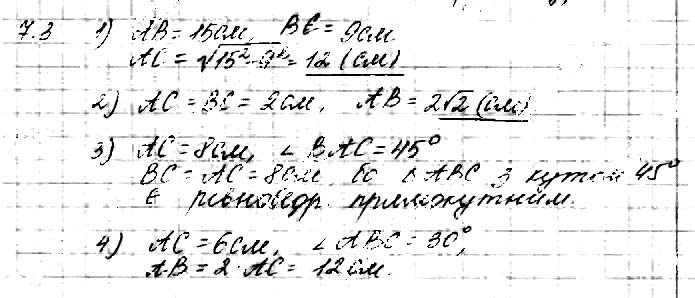 7.3 1) AB = 15см, BC = 9см
AC = √15² - 9² = 12 (см)
2) AC = BC = 2см, AB = 2√2 (см)
3) AC = 8см, ∠BAC = 45°
BC = AC = 8см, бо △ABC з кутом 45°
є рівнобедр. прямокутним.
4) AC = 6см, ∠ABC = 30°,
AB = 2·AC = 12см.